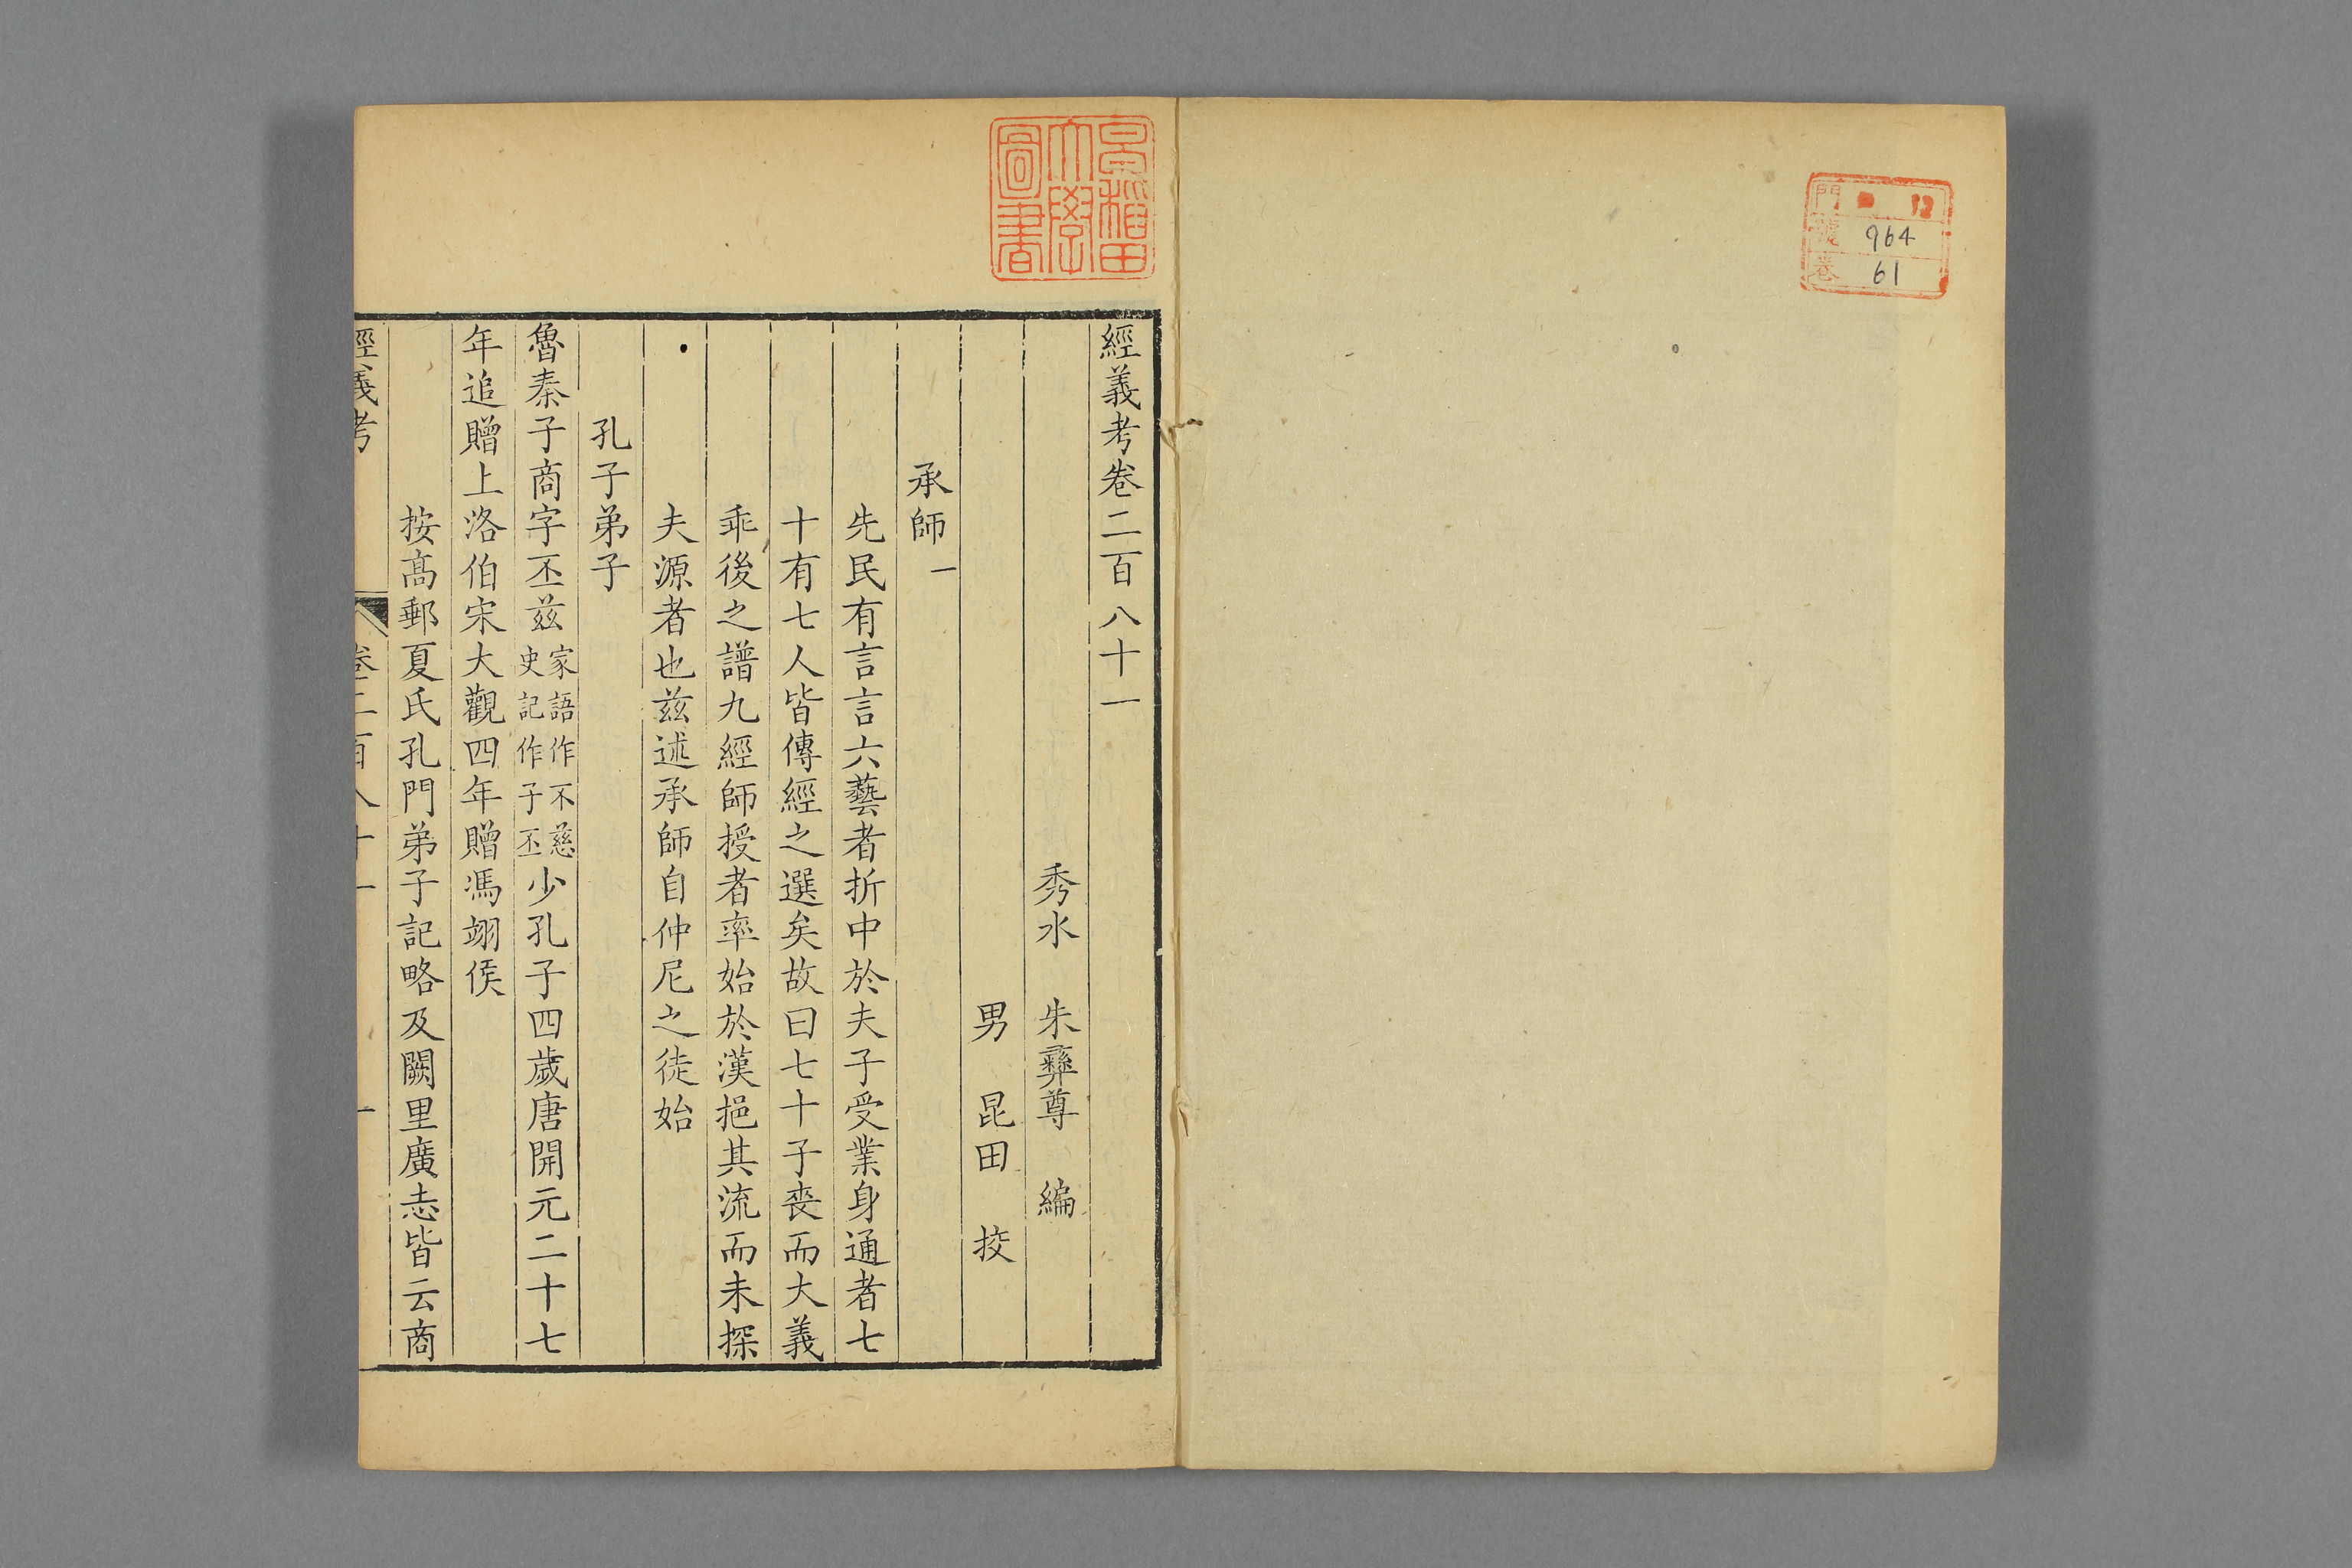 門 12
號 964
卷 61
早稲田
大學
圖書
經義考卷二百八十一
秀水 朱彝尊 編
男 昆田 挍
承師一
先民有言言六藝者折中於夫子受業身通者七
十有七人皆傳經之選矣故曰七十子喪而大義
乖後之譜九經師授者率始於漢挹其流而未探
夫源者也兹述承師自仲尼之徒始
孔子弟子
魯秦子商字丕兹家語作不慈史記作子丕少孔子四歲唐開元二十七
年追贈上洛伯宋大觀四年贈馮翊侯
按高郵夏氏孔門弟子記略及闕里廣志皆云商
經義考 卷二百八十一 一